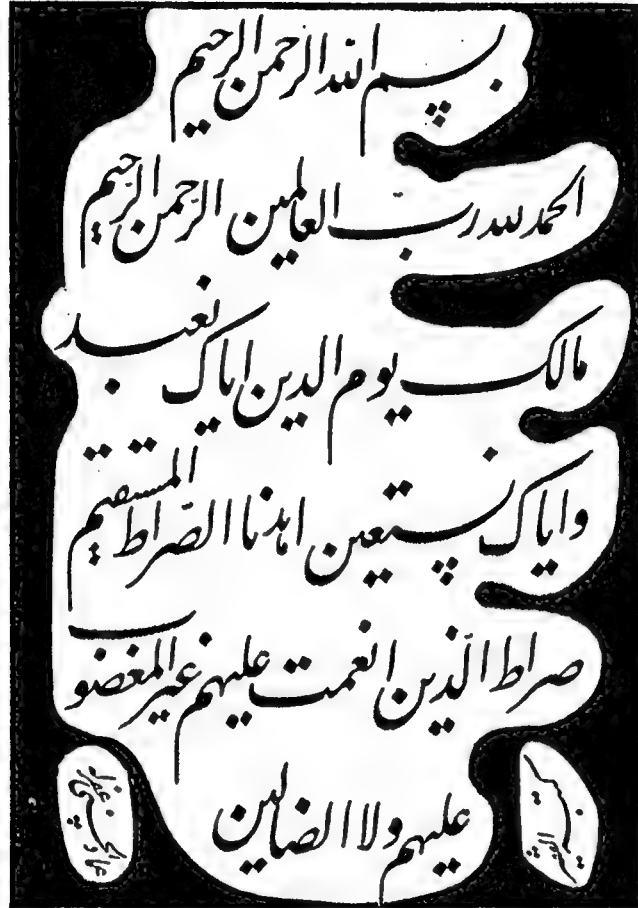 بسم الله الرحمن الرحیم
الحمدلله ربّ العالمین الرّحمن الرّحیم
مالک یوم الدین ایاک نعبد
وایاک نستعین اهدنا الصّراط المستقیم
صراط الّذین انعمت علیهم غیرالمغضوب
علیهم ولا الضالین